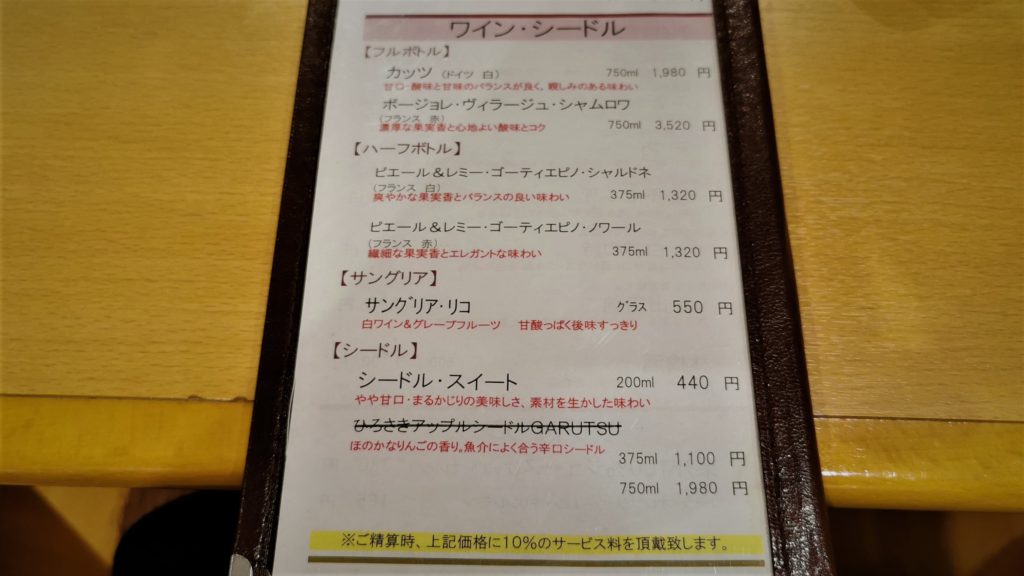 ワイン・シードル
【フルボトル】
カッツ （ドイツ 白） 750ml 1,980 円
甘口・酸味と甘味のバランスが良く、親しみのある味わい
ボージョレ・ヴィラージュ・シャムロワ
（フランス 赤） 750ml 3,520 円
濃厚な果実香と心地よい酸味とコク
【ハーフボトル】
ピエール＆レミー・ゴーティエピノ・シャルドネ
（フランス 白） 375ml 1,320 円
爽やかな果実香とバランスの良い味わい
ピエール＆レミー・ゴーティエピノ・ノワール
（フランス 赤） 375ml 1,320 円
繊細な果実香とエレガントな味わい
【サングリア】
サングリア・リコ グラス 550 円
白ワイン＆グレープフルーツ 甘酸っぱく後味すっきり
【シードル】
シードル・スイート 200ml 440 円
やや甘口・まるかじりの美味しさ、素材を生かした味わい
ひろさきアップルシードルGARUTSU
ほのかなりんごの香り。魚介によく合う辛口シードル
375ml 1,100 円
750ml 1,980 円
※ご精算時、上記価格に10%のサービス料を頂戴致します。